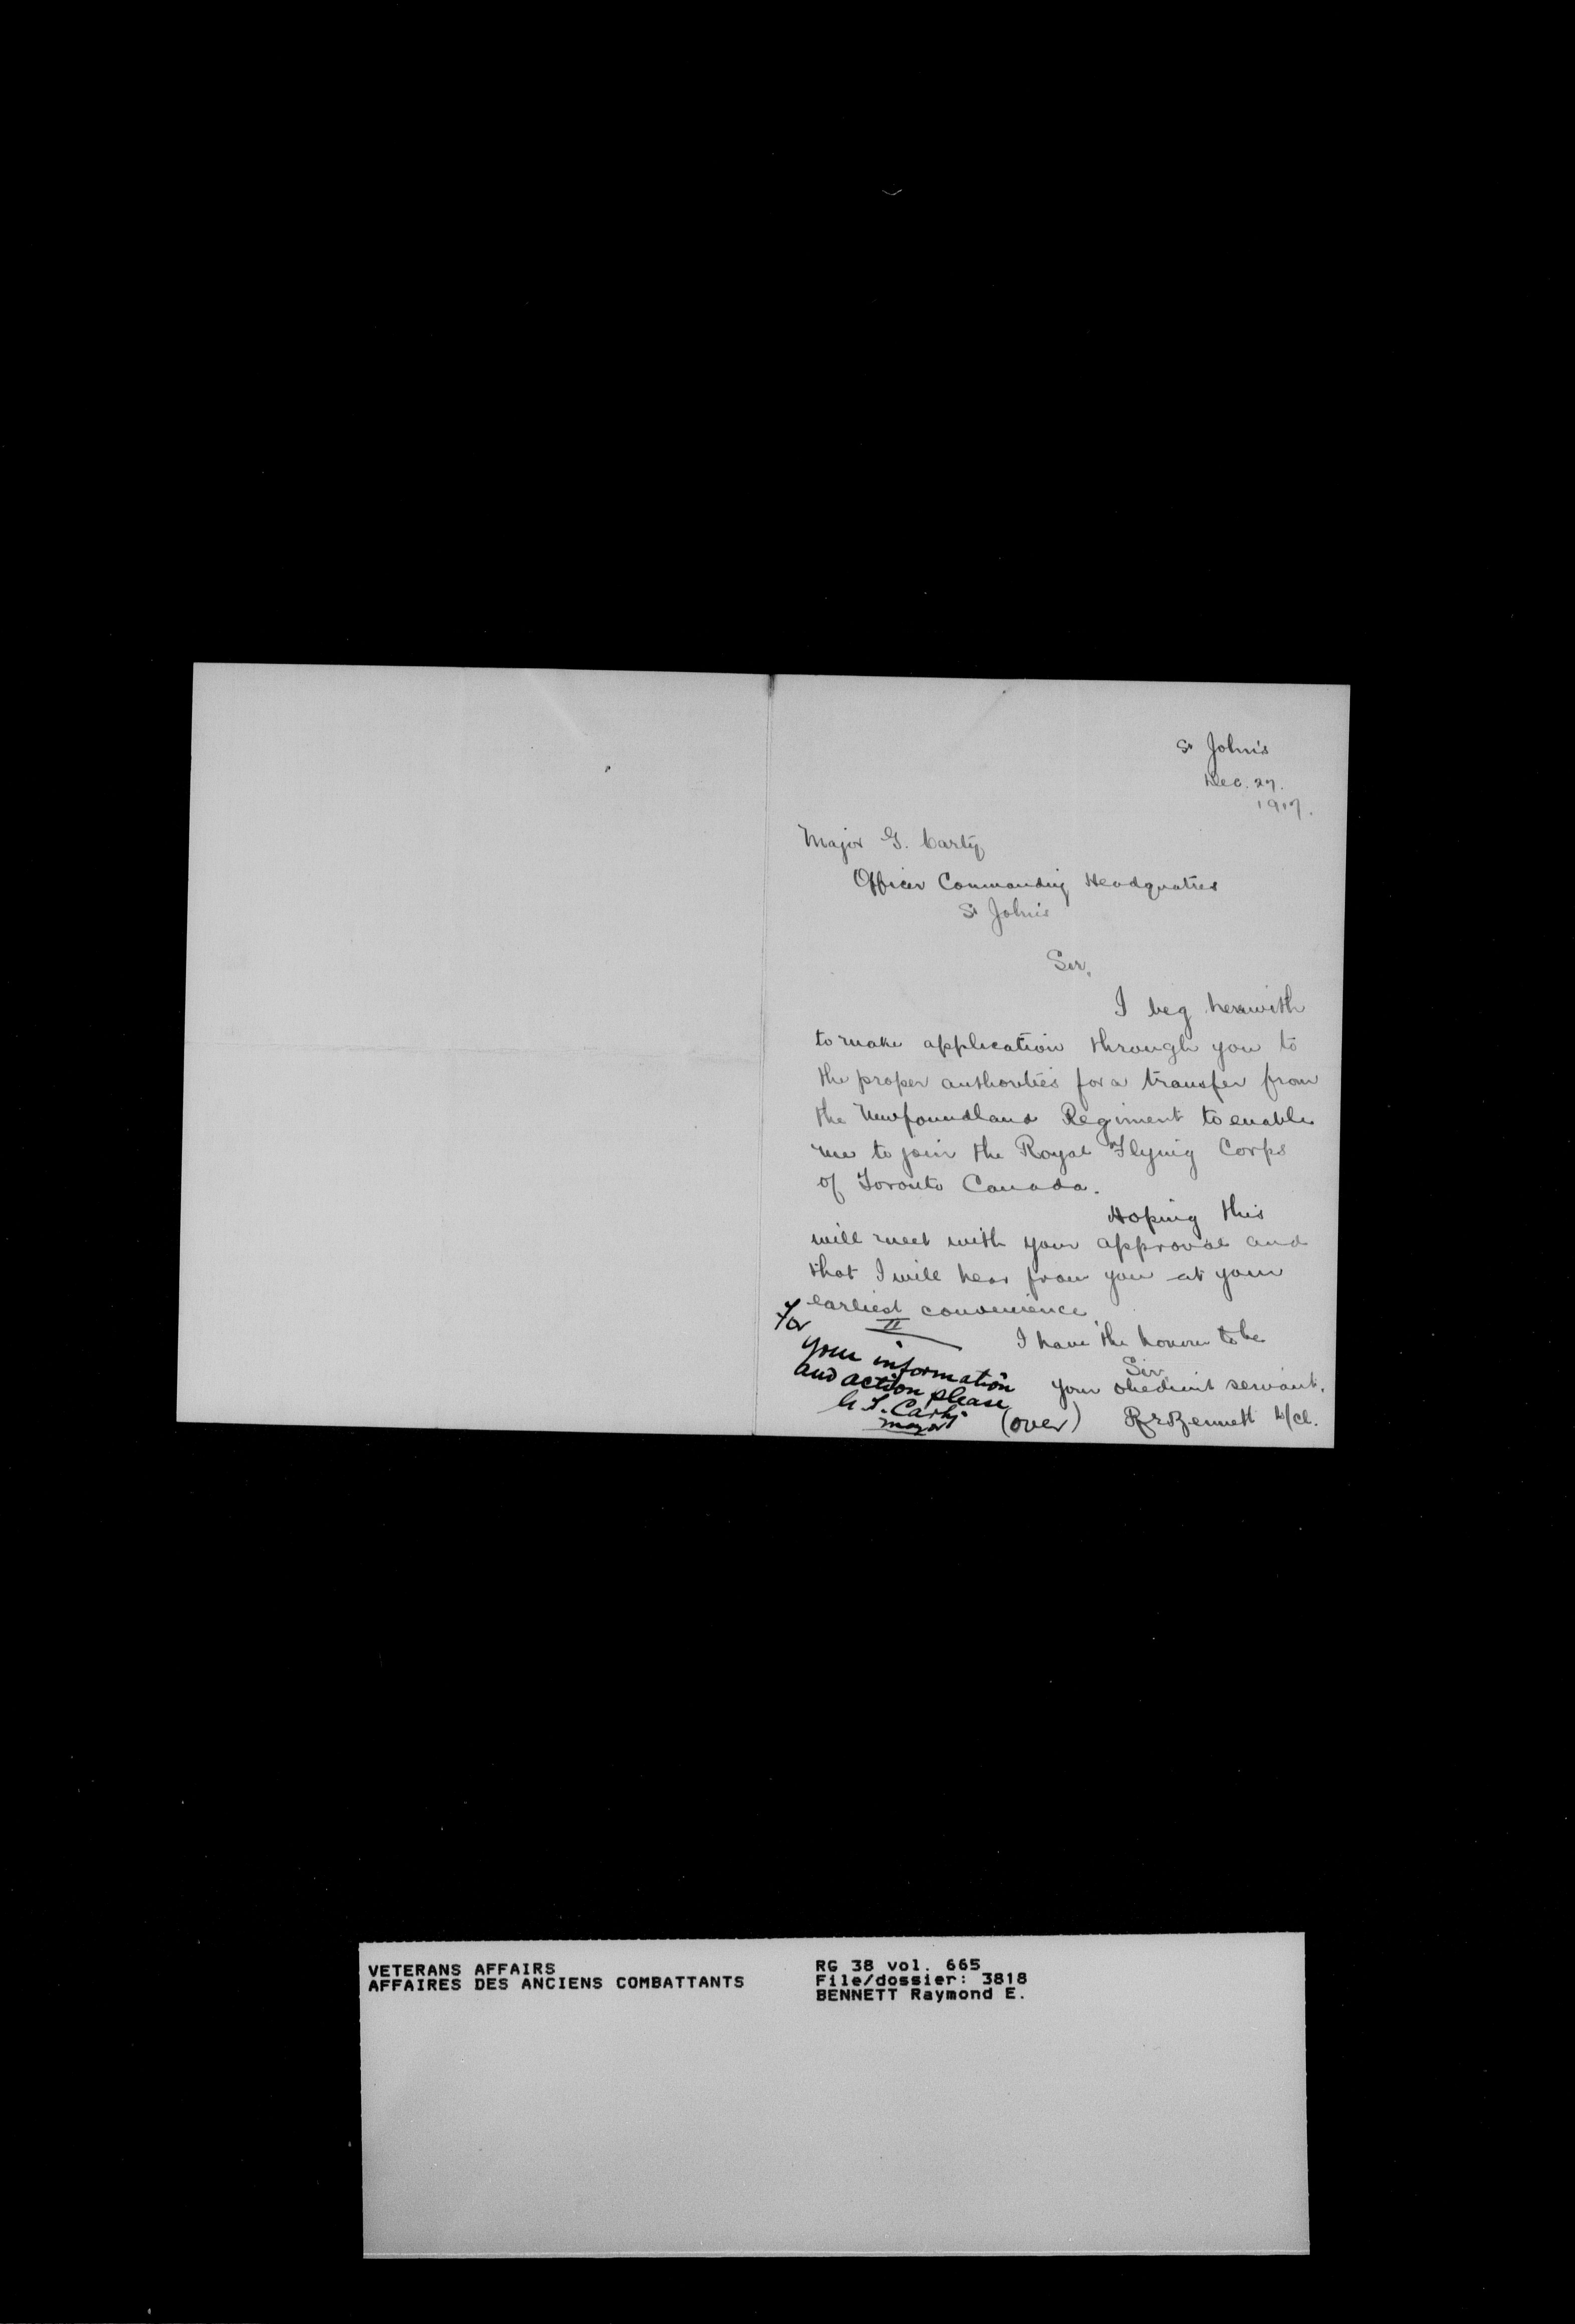 St John's
Dec. 27.
1917.
Major G. Carty
Officer Commanding Headquatres
St John's
Sir,
I beg herewith
to make application through you to
the proper authorities for a transfer from
the Newfoundland Regiment to enable
me to join the Royal Flying Corps
of Toronto Canada.
Hoping this
will meet with your approval and
that I will hear from you at your
earliest convenience.
I have the honour to be
Sir,
your obedient servant.
R E Bennett L/Cl.
II
For
your information
and action please
G. T. Carty
Major
(over)
VETERANS AFFAIRS
AFFAIRES DES ANCIENS COMBATTANTS
RG 38 vol. 665
File/dossier: 3818
BENNETT Raymond E.